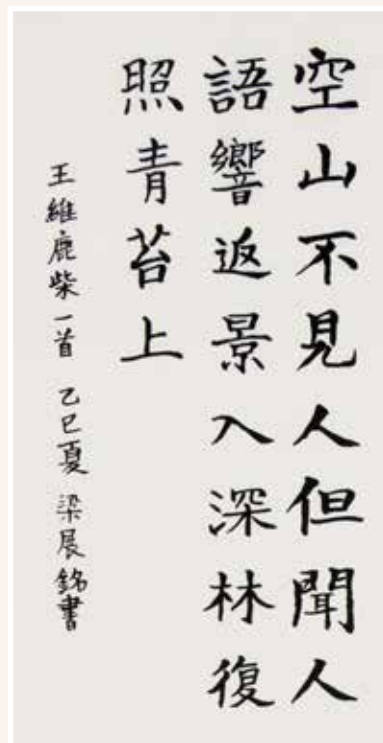 空山不見人但聞人
語響返景入深林復
照青苔上
王維鹿柴一首 乙巳夏 梁展銘書